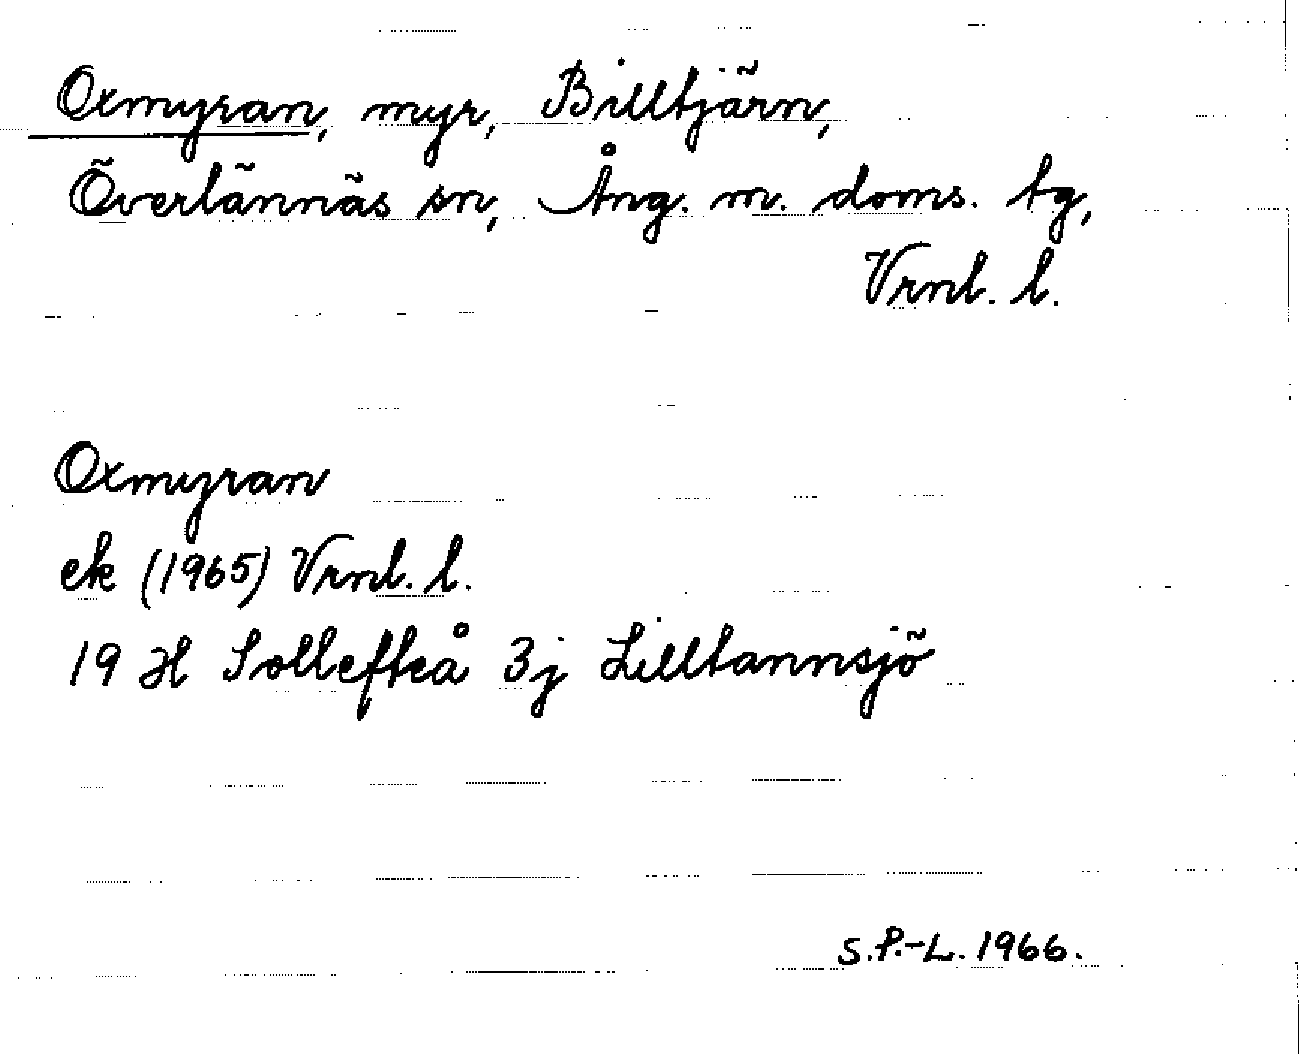 Oxmyran, myr, Billtjärn,
Överlännäs sn, Ång. m. doms. tg,
Vrnl. l.
Oxmyran
ek (1965) Vrnl. l.
19 H Sollefteå 3j Lilltannsjö
S.P.-L. 1966.